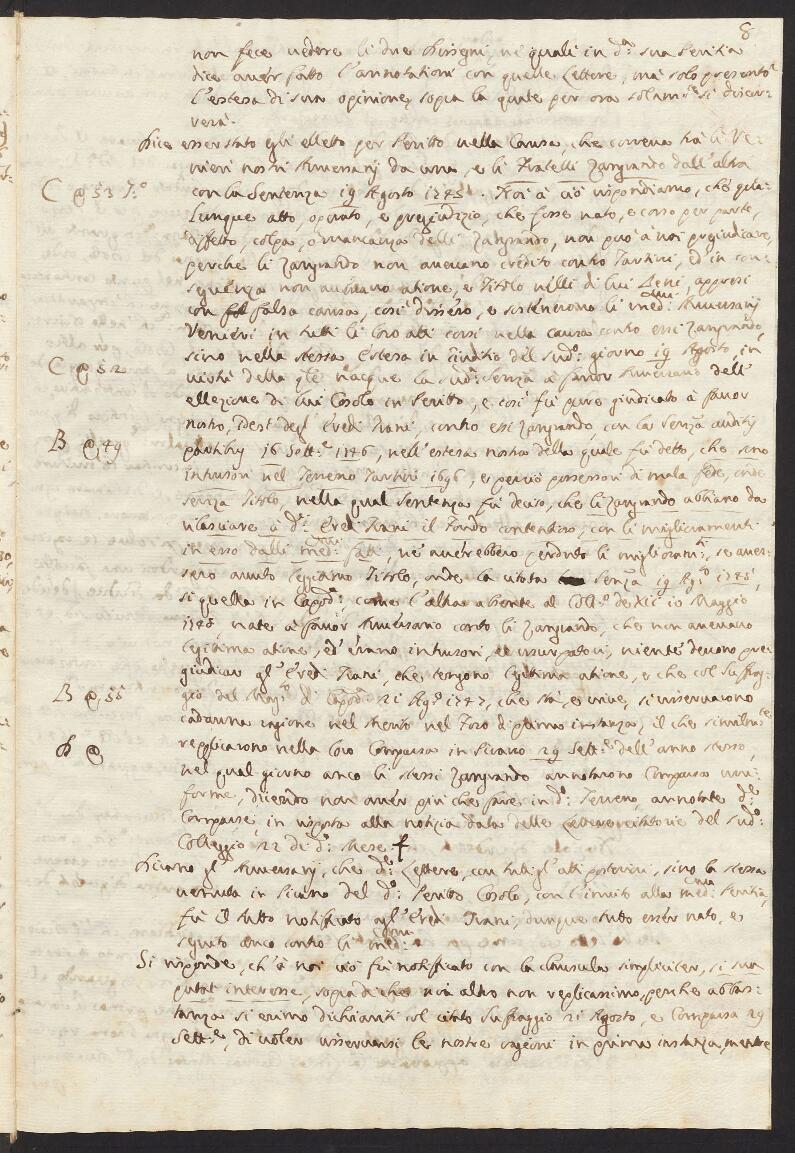 8
non fece vedere li due dissegni, ne' quali in d.ª sua Peritia
dice avér fatto l'annotationi con quelle Lettere, mà solo presentò
l'estesa di sua opinione, sopra la quale per ora solam.te si discor-
rerà.
Dice esser stato egli elletto per Peritto nella Causa, che correva trà li Ve-
nieri nostri Avversarij da una, e li Fratelli Zangrando dall'altra
C @ 53 T.º con la Sentenza 19 Agosto 1745. Noi à ciò rispondiamo, che qua-
lunque atto, operato, e pregiudizio, che fosse nato, e corso per parte,
diffetto, colpa, ò mancanza delli Zangrando, non può à noi pregiudicare,
perche li Zangrando non avevano crédito contro Tartini, ed in con-
seguenza non avévano atione, e Titolo nelli di lui Beni, appresi
con falsa causa, così dissero, e sosténerono li med.mi Avversarij
Venieri in tutti li loro atti corsi nella causa contro essi Zangrando,
sino nella stessa Estesa in Giuditio del sud.º giorno 19 Agosto, in
C @ 52 virtù della q.le nacque la sud.ª Senza à favor Avversario dell'
ellezione di lui Cosolo in Peritto, e così fù pure giudicato à favor
B @ 49 nostro, Idest degl'Eredi Trani, contro essi Zangrando, con la Senza auditis
partibus 16 Sett.e 1746, nell'estesa nostra della quale fù detto, che sino
intrusori nel Terreno Tartini 1696, e perciò possessori di mala fede, onde
senza Titolo, nella qual Sentenza fù deciso, che li Zangrando abbiano da
rilasciare à d.i Eredi Trani il Fondo contentioso, con li miglioramenti
in esso dalli med.mi fatti, né avérebbero perduto li miglioram.ti, se aves-
sero avuto legitimo Titolo, onde la citata Senza 19 Ag.º 1745,
si quella in Capod.ª, come l'altra absente al Coll.º de XII.ci 10 Maggio
1748, nate à favor Avversario contro li Zangrando, che non avevano
legitima atione, ed érano intrusori, et usurpatori, niente devono pre-
giudicar gl'Eredi Trani, che tengono legitima atione, e che col Suffrag-
B @ 55 gio del Mag.º di Capod.ª 21 Ag.º 1747, che stà, e vive, si riservarono
cadauna ragione nel merito nel Foro di prima instanza, il che similm.te
D @ repplicarono nella loro Comparsa in Pirano 29 Sett.e dell'anno stesso,
nel qual giorno anco li stessi Zangrando annotarono Comparsa uni-
forme, dicendo non avér più che fare in d.º Terreno, annotate d.e
Comparse, in risposta alla notizia data delle Lettere citatorie del sud.º
Colleggio 22 di d.º Mese.
Dicono gl'Avversarij, che d.e Lettere, con tutti gl'atti posteriori, sino la stessa
venuta in Pirano del d.º Peritto Cosolo, con l'invito alla med.ma Peritia,
fù il tutto notificato agl'Eredi Trani, dunque tutto essér nato, e
seguito anco contro li med.mi
Si risponde, ch'à noi ciò fù notificato con la clausula simpliciter, si sua
putat interesse, sopra di che noi altro non replicassimo, perche abbas-
tanza si erimo dichiariti col citato Suffraggio 21 Agosto, e Comparsa 29
Sett.e, di voler riservarsi le nostre ragioni in prima instanza, mentre